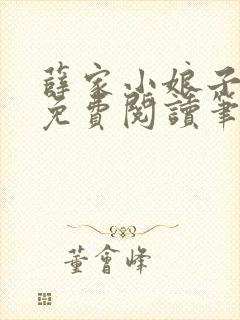 薛家小娘子
免費閱讀筆
董會峰